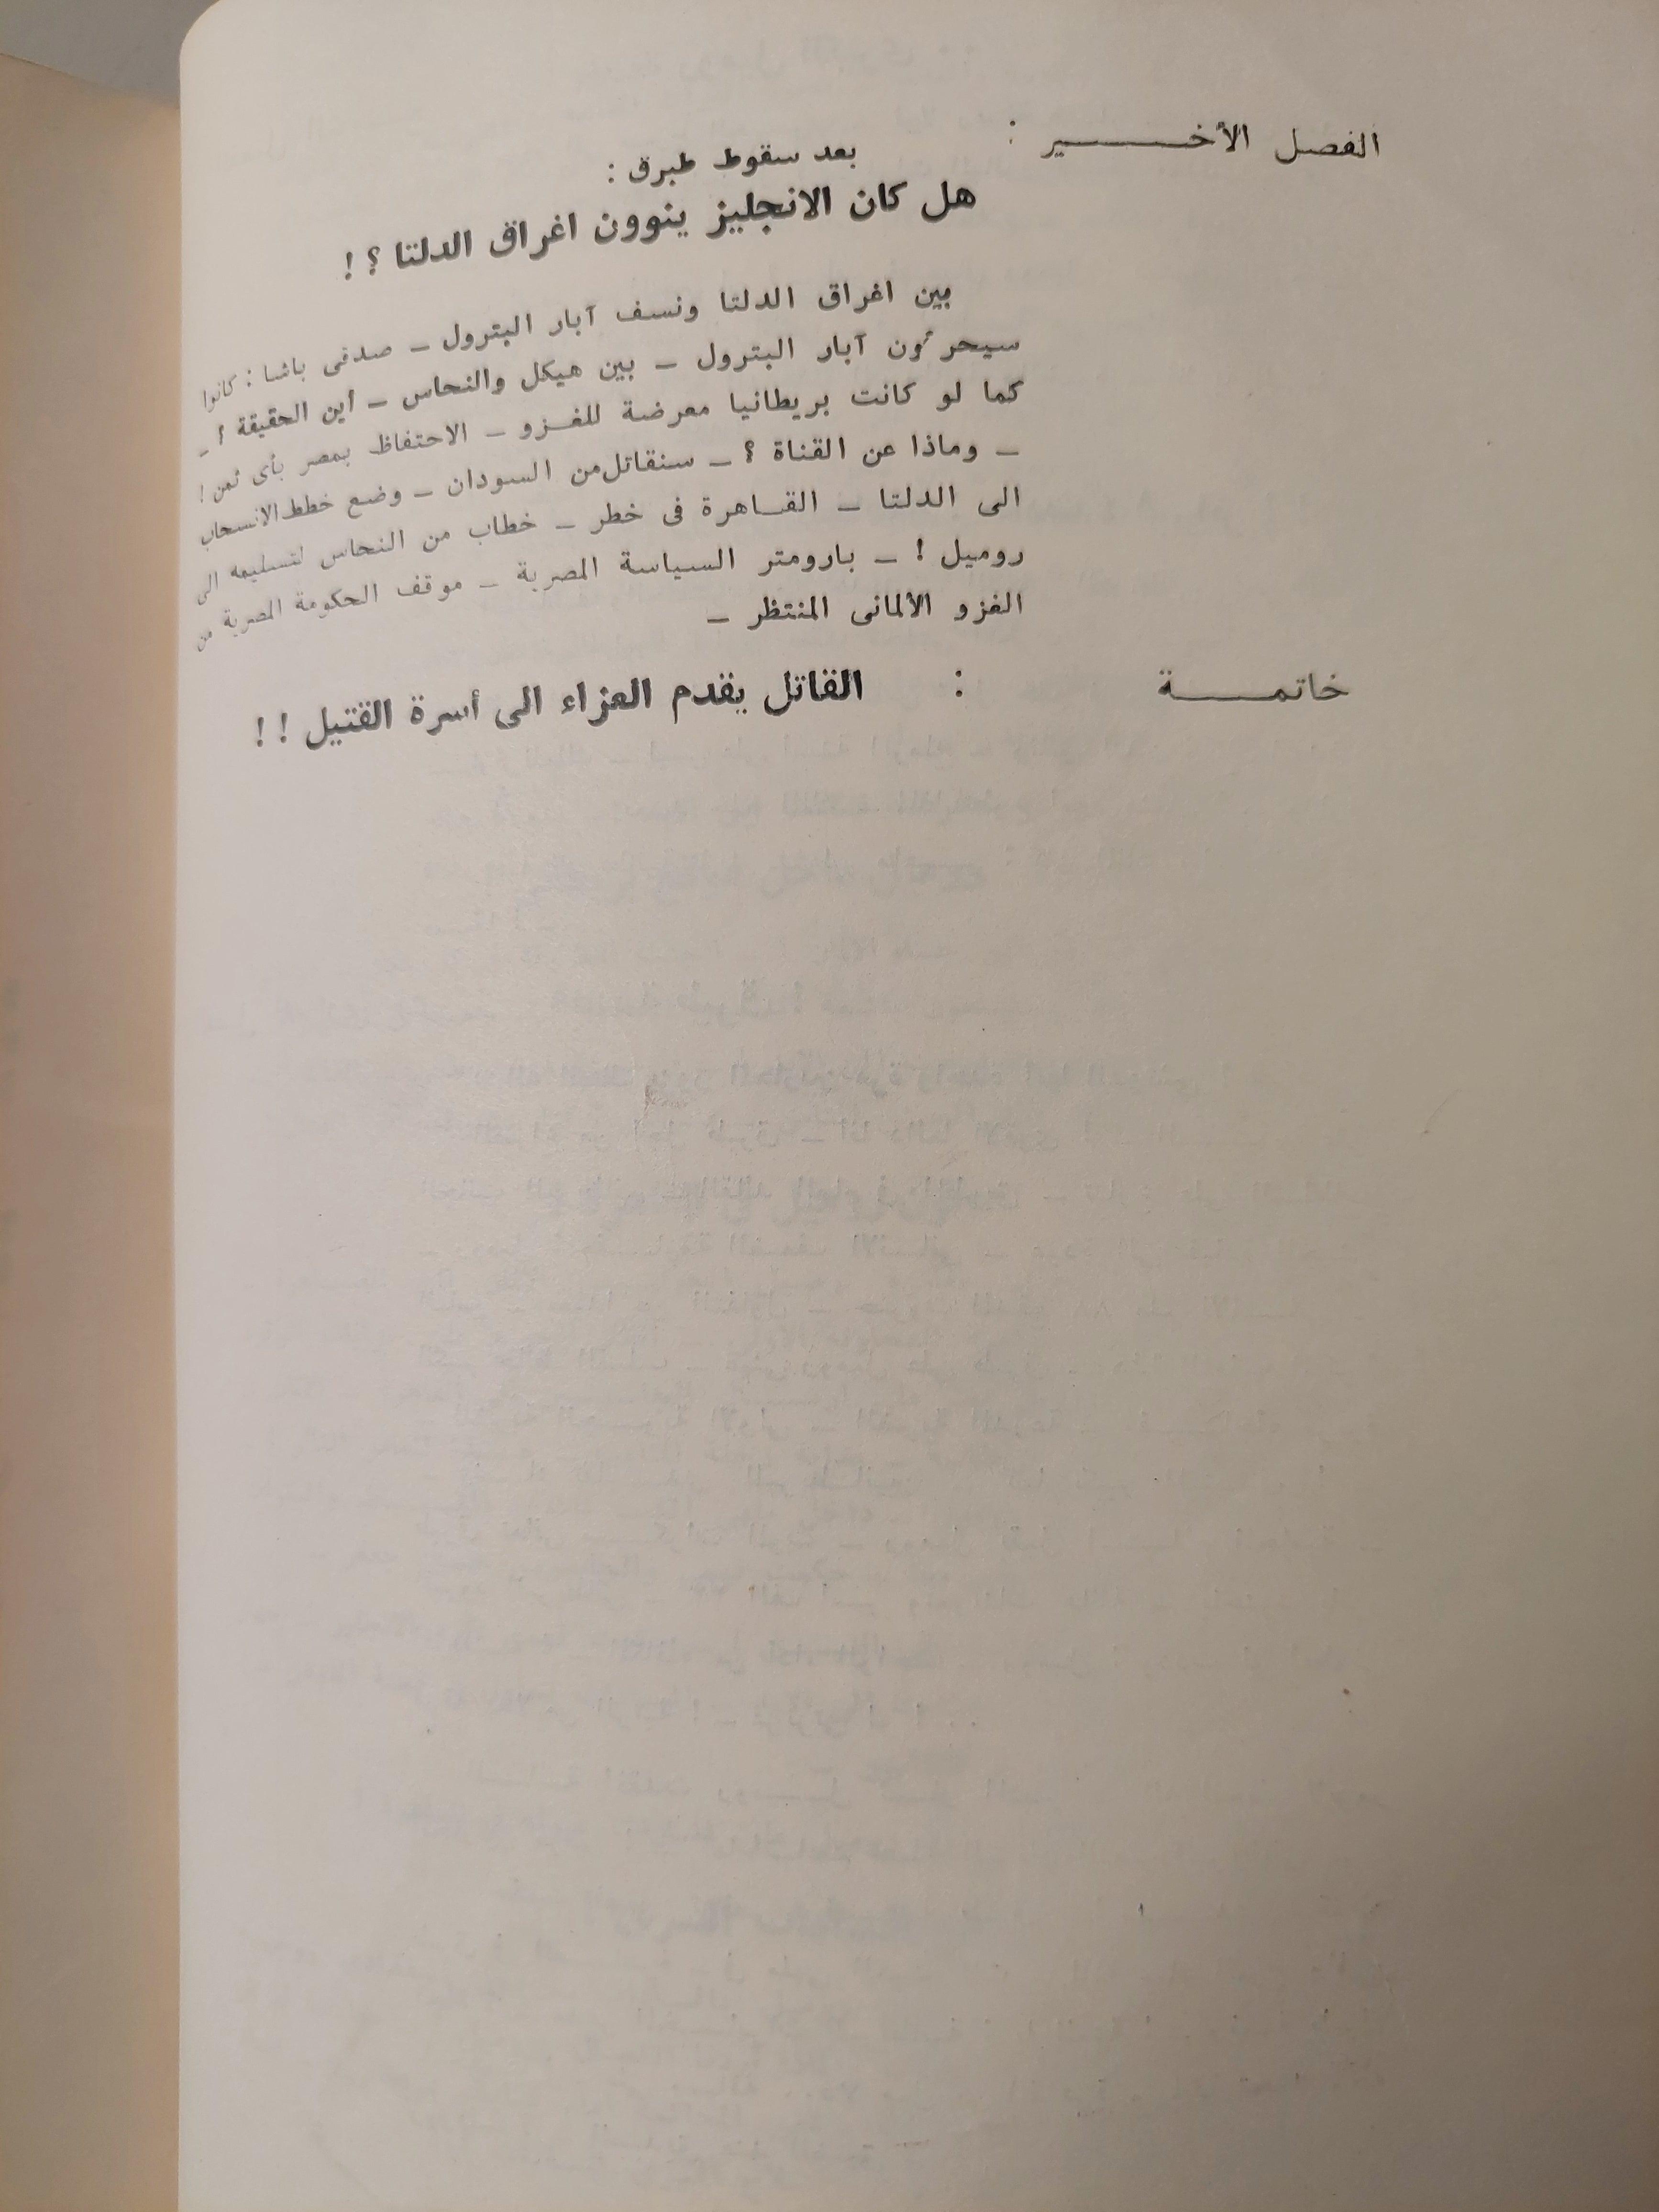 الفصل الأخير :
بعد سقوط طبرق :
هل كان الانجليز ينوون اغراق الدلتا ؟ !
بين اغراق الدلتا ونسف آبار البترول – صدقى باشا : كانوا
سيحرئون آبار البترول – بين هيكل والنحاس – أين الحقيقة ! –
كما لو كانت بريطانيا معرضة للغزو – الاحتفاظ بمصر بأى ثمن !
– وماذا عن القناة ؟ – سنقاتل من السودان – وضع خطط الانسحاب
الى الدلتا – القاهرة فى خطر – خطاب من النحاس لتسليمه الى
روميل ! – بارومتر السياسة المصرية – موقف الحكومة المصرية من
الغزو الألمانى المنتظر –
خاتمة : القاتل يقدم العزاء الى أسرة القتيل ! !